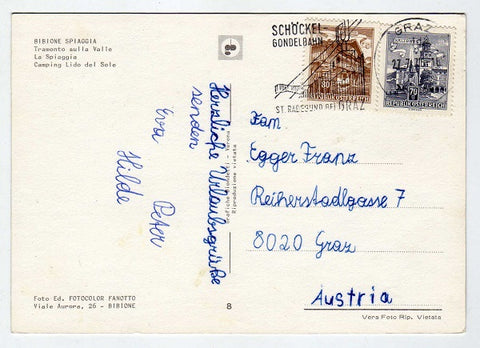 BIBIONE SPIAGGIA
Tramonto sulla Valle
La Spiaggia
Camping Lido del Sole
Herzliche Urlaubsgrüße
senden
Eva
Hilde Peter
Foto Ed. FOTOCOLOR FANOTTO
Viale Aurora, 26 - BIBIONE
8
Riproduzione vietata
SCHÖCKEL
GONDELBAHN
ST. RADEGUND BEI GRAZ
GRAZ
REPUBLIK ÖSTERREICH
Fam
Egger Franz
Reiherstadlgasse 7
8020 Graz
Austria
Vera Foto Rip. Vietata